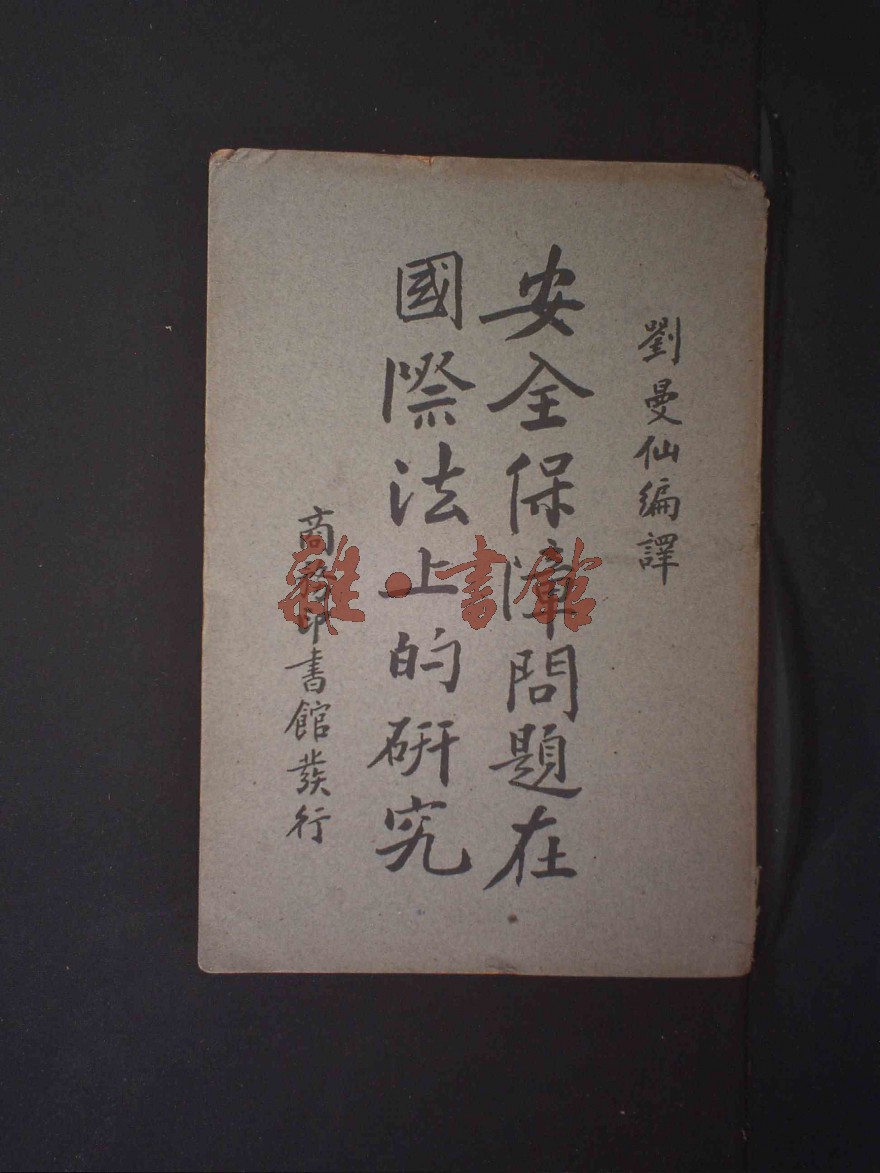 劉曼仙編譯
安全保障問題在
國際法上的研究
商務印書館發行
雜·書館